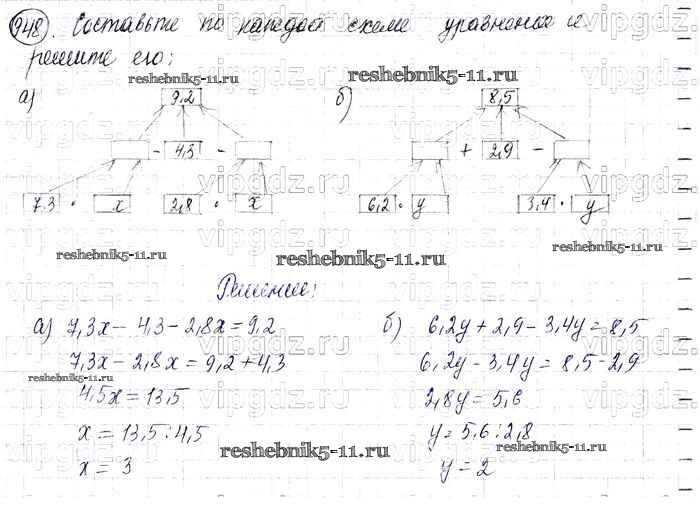 948. Составьте по каждой схеме уравнение и
решите его:
reshebnik5-11.ru reshebnik5-11.ru
а) 9,2 б) 8,5
- 4,3 - + 2,9 -
7.3 · x 2,8 · x 6,2 · y 3,4 · y
vipgdz.ru
reshebnik5-11.ru reshebnik5-11.ru reshebnik5-11.ru
Решение:
а) 7,3x - 4,3 - 2,8x = 9,2 б) 6,2y + 2,9 - 3,4y = 8,5
7,3x - 2,8x = 9,2 + 4,3 6,2y - 3,4y = 8,5 - 2,9
reshebnik5-11.ru
4,5x = 13,5 2,8y = 5,6
x = 13,5 : 4,5 y = 5,6 : 2,8
reshebnik5-11.ru reshebnik5-11.ru
x = 3 y = 2